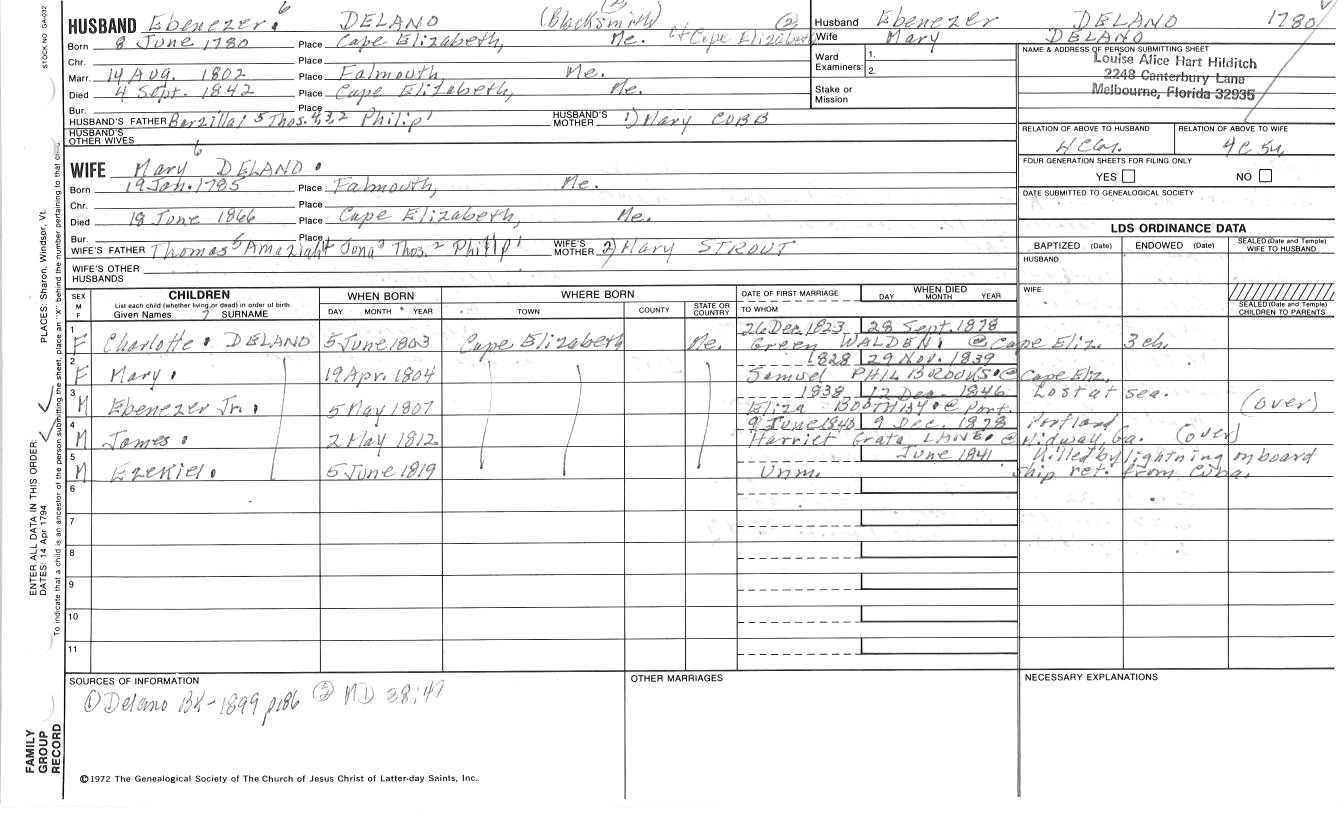 STOCK NO GA-032
HUSBAND Ebenezer 6 DELANO (Blacksmith) (2) of Cape Elizabeth
Born 8 June 1780 Place Cape Elizabeth, Me.
Chr. Place
Marr. 14 Aug. 1802 Place Falmouth Me.
Died 4 Sept. 1842 Place Cape Elizabeth, Me.
Bur. Place
HUSBAND'S FATHER Barzillai 5 Thos. 4,3,2 Philip 1 HUSBAND'S MOTHER 1) Mary COBB
HUSBAND'S OTHER WIVES
WIFE Mary 6 DELANO.
Born 19 Jan. 1785 Place Falmouth, Me.
Chr. Place
Died 18 June 1866 Place Cape Elizabeth, Me.
Bur. Place
WIFE'S FATHER Thomas 5 Amaziah 4 Jona 3 Thos. 2 Philip 1 WIFE'S MOTHER 2) Mary STROUT
WIFE'S OTHER HUSBANDS
Husband Ebenezer DELANO 1780
Wife Mary DELANO
Ward Examiners: 1. 2.
Stake or Mission
NAME & ADDRESS OF PERSON SUBMITTING SHEET
Louise Alice Hart Hilditch
2248 Canterbury Lane
Melbourne, Florida 32935
RELATION OF ABOVE TO HUSBAND RELATION OF ABOVE TO WIFE
FOUR GENERATION SHEETS FOR FILING ONLY
YES NO
DATE SUBMITTED TO GENEALOGICAL SOCIETY
LDS ORDINANCE DATA
BAPTIZED (Date) ENDOWED (Date) SEALED (Date and Temple) WIFE TO HUSBAND
HUSBAND
WIFE
SEALED (Date and Temple) CHILDREN TO PARENTS
SEX M F CHILDREN WHEN BORN WHERE BORN DATE OF FIRST MARRIAGE WHEN DIED
List each child (whether living or dead) in order of birth
Given Names 7 SURNAME DAY MONTH YEAR TOWN COUNTY STATE OR COUNTRY TO WHOM DAY MONTH YEAR
1 26 Dec. 1823 28 Sept. 1878
F Charlotte. DELANO 5 June 1803 Cape Elizabeth Me. Green WALDEN. @ Cape Eliz. 3 ch.
2 1828 29 Nov. 1839
F Mary. 19 Apr. 1804 Samuel PHILBROOKS. @ Cape Eliz.
3 1838 12 Dec. 1846 Lost at sea.
M Ebenezer Jr. 5 May 1807 Eliza BOOTHBY. @ Port. (over)
4 9 June 1840 9 Dec. 1878 Portland
M James. 2 May 1812 Harriet Grata LANE. @ Midway, Ga. (over)
5 June 1841 Killed by lightning on board
M Ezekiel. 5 June 1819 Unm. ship ret. from Cuba.
6
7
8
9
10
11
SOURCES OF INFORMATION OTHER MARRIAGES NECESSARY EXPLANATIONS
① Delano BK - 1899 p186 ② MD 38:47
©1972 The Genealogical Society of The Church of Jesus Christ of Latter-day Saints, Inc.
FAMILY GROUP RECORD
ENTER ALL DATA IN THIS ORDER:
DATES: 14 Apr 1794
PLACES: Sharon, Windsor, Vt.
To indicate that a child is an ancestor of the person submitting the sheet, place an "X" behind the number pertaining to that